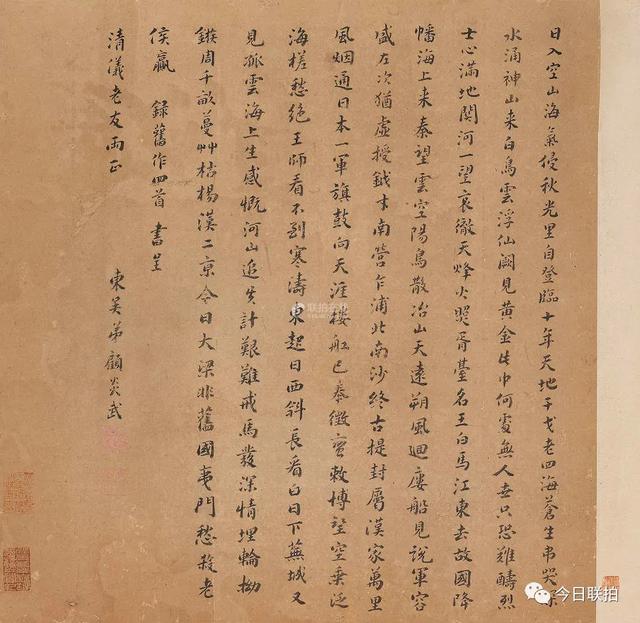 日入空山海氣侵秋光里自登臨十年天地干戈老四海蒼生弔哭深
水涌神山来白鳥雲浮仙闕見黄金此中何處無人世只恐難酬烈
士心滿地關河一望哀徹天烽火照胥臺名王白馬江東去故國降
幡海上来秦望雲空陽鳥散冶山天遠朔風迴廔船見說軍容
盛左次猶虛授鉞才南營乍浦北南沙終古提封屬漢家萬里
風烟通日本一軍旗鼓向天涯樓舡已奉徵蠻敕博望空乘泛
海槎愁絕王師看不到寒濤東起日西斜長看白日下蕪城又
見孤雲海上生感慨河山追失計艱難戎馬發深情埋輪拗
鏃周千畝蔓艸枯楊漢二京今日大梁非舊國夷門愁殺老
侯嬴 録舊作四首 書呈
清儀老友両正
東吴弟顧炎武
联拍在线
今日联拍